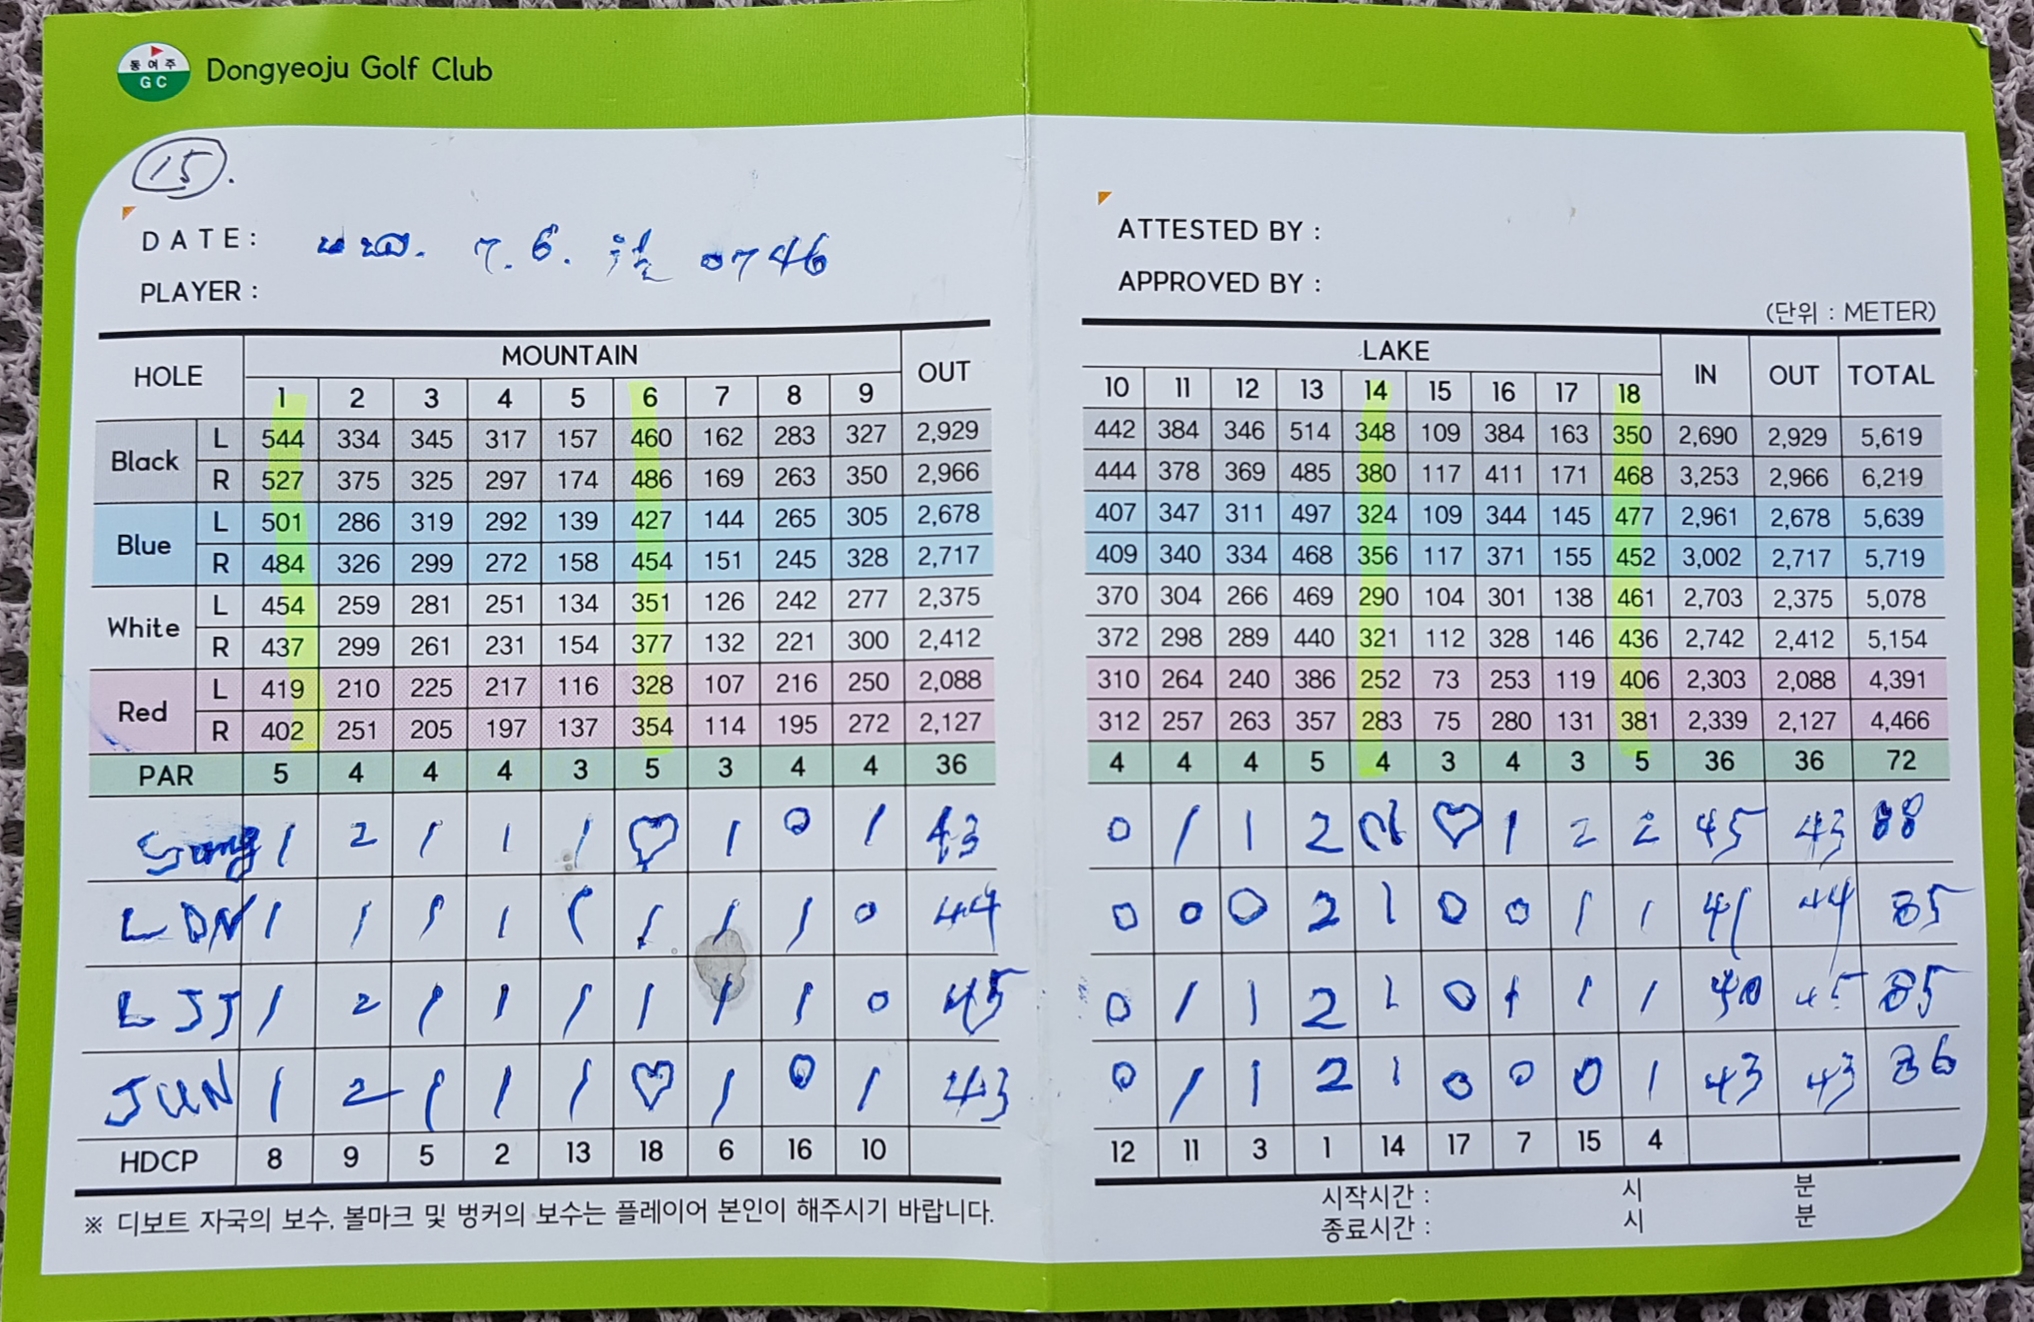 동여주
GC
Dongyeoju Golf Club
15.
DATE : 7. 6. 0746
PLAYER :
ATTESTED BY :
APPROVED BY :
(단위 : METER)
HOLE MOUNTAIN OUT LAKE IN OUT TOTAL
1 2 3 4 5 6 7 8 9 10 11 12 13 14 15 16 17 18
Black L 544 334 345 317 157 460 162 283 327 2,929 442 384 346 514 348 109 384 163 350 2,690 2,929 5,619
R 527 375 325 297 174 486 169 263 350 2,966 444 378 369 485 380 117 411 171 468 3,253 2,966 6,219
Blue L 501 286 319 292 139 427 144 265 305 2,678 407 347 311 497 324 109 344 145 477 2,961 2,678 5,639
R 484 326 299 272 158 454 151 245 328 2,717 409 340 334 468 356 117 371 155 452 3,002 2,717 5,719
White L 454 259 281 251 134 351 126 242 277 2,375 370 304 266 469 290 104 301 138 461 2,703 2,375 5,078
R 437 299 261 231 154 377 132 221 300 2,412 372 298 289 440 321 112 328 146 436 2,742 2,412 5,154
Red L 419 210 225 217 116 328 107 216 250 2,088 310 264 240 386 252 73 253 119 406 2,303 2,088 4,391
R 402 251 205 197 137 354 114 195 272 2,127 312 257 263 357 283 75 280 131 381 2,339 2,127 4,466
PAR 5 4 4 4 3 5 3 4 4 36 4 4 4 5 4 3 4 3 5 36 36 72
Song 1 2 1 1 1 ♡ 1 0 1 43 0 1 1 2 ♡ 1 2 2 45 43 88
LDN 1 1 1 1 1 1 1 1 0 44 0 0 0 2 1 0 0 1 1 41 44 85
LJJ 1 2 1 1 1 1 1 1 0 45 0 1 1 2 1 0 1 1 1 40 45 85
JUN 1 2 1 1 1 ♡ 1 0 1 43 0 1 1 2 1 0 0 0 1 43 43 86
HDCP 8 9 5 2 13 18 6 16 10 12 11 3 1 14 17 7 15 4
※ 디보트 자국의 보수, 볼마크 및 벙커의 보수는 플레이어 본인이 해주시기 바랍니다.
시작시간 : 시 분
종료시간 : 시 분